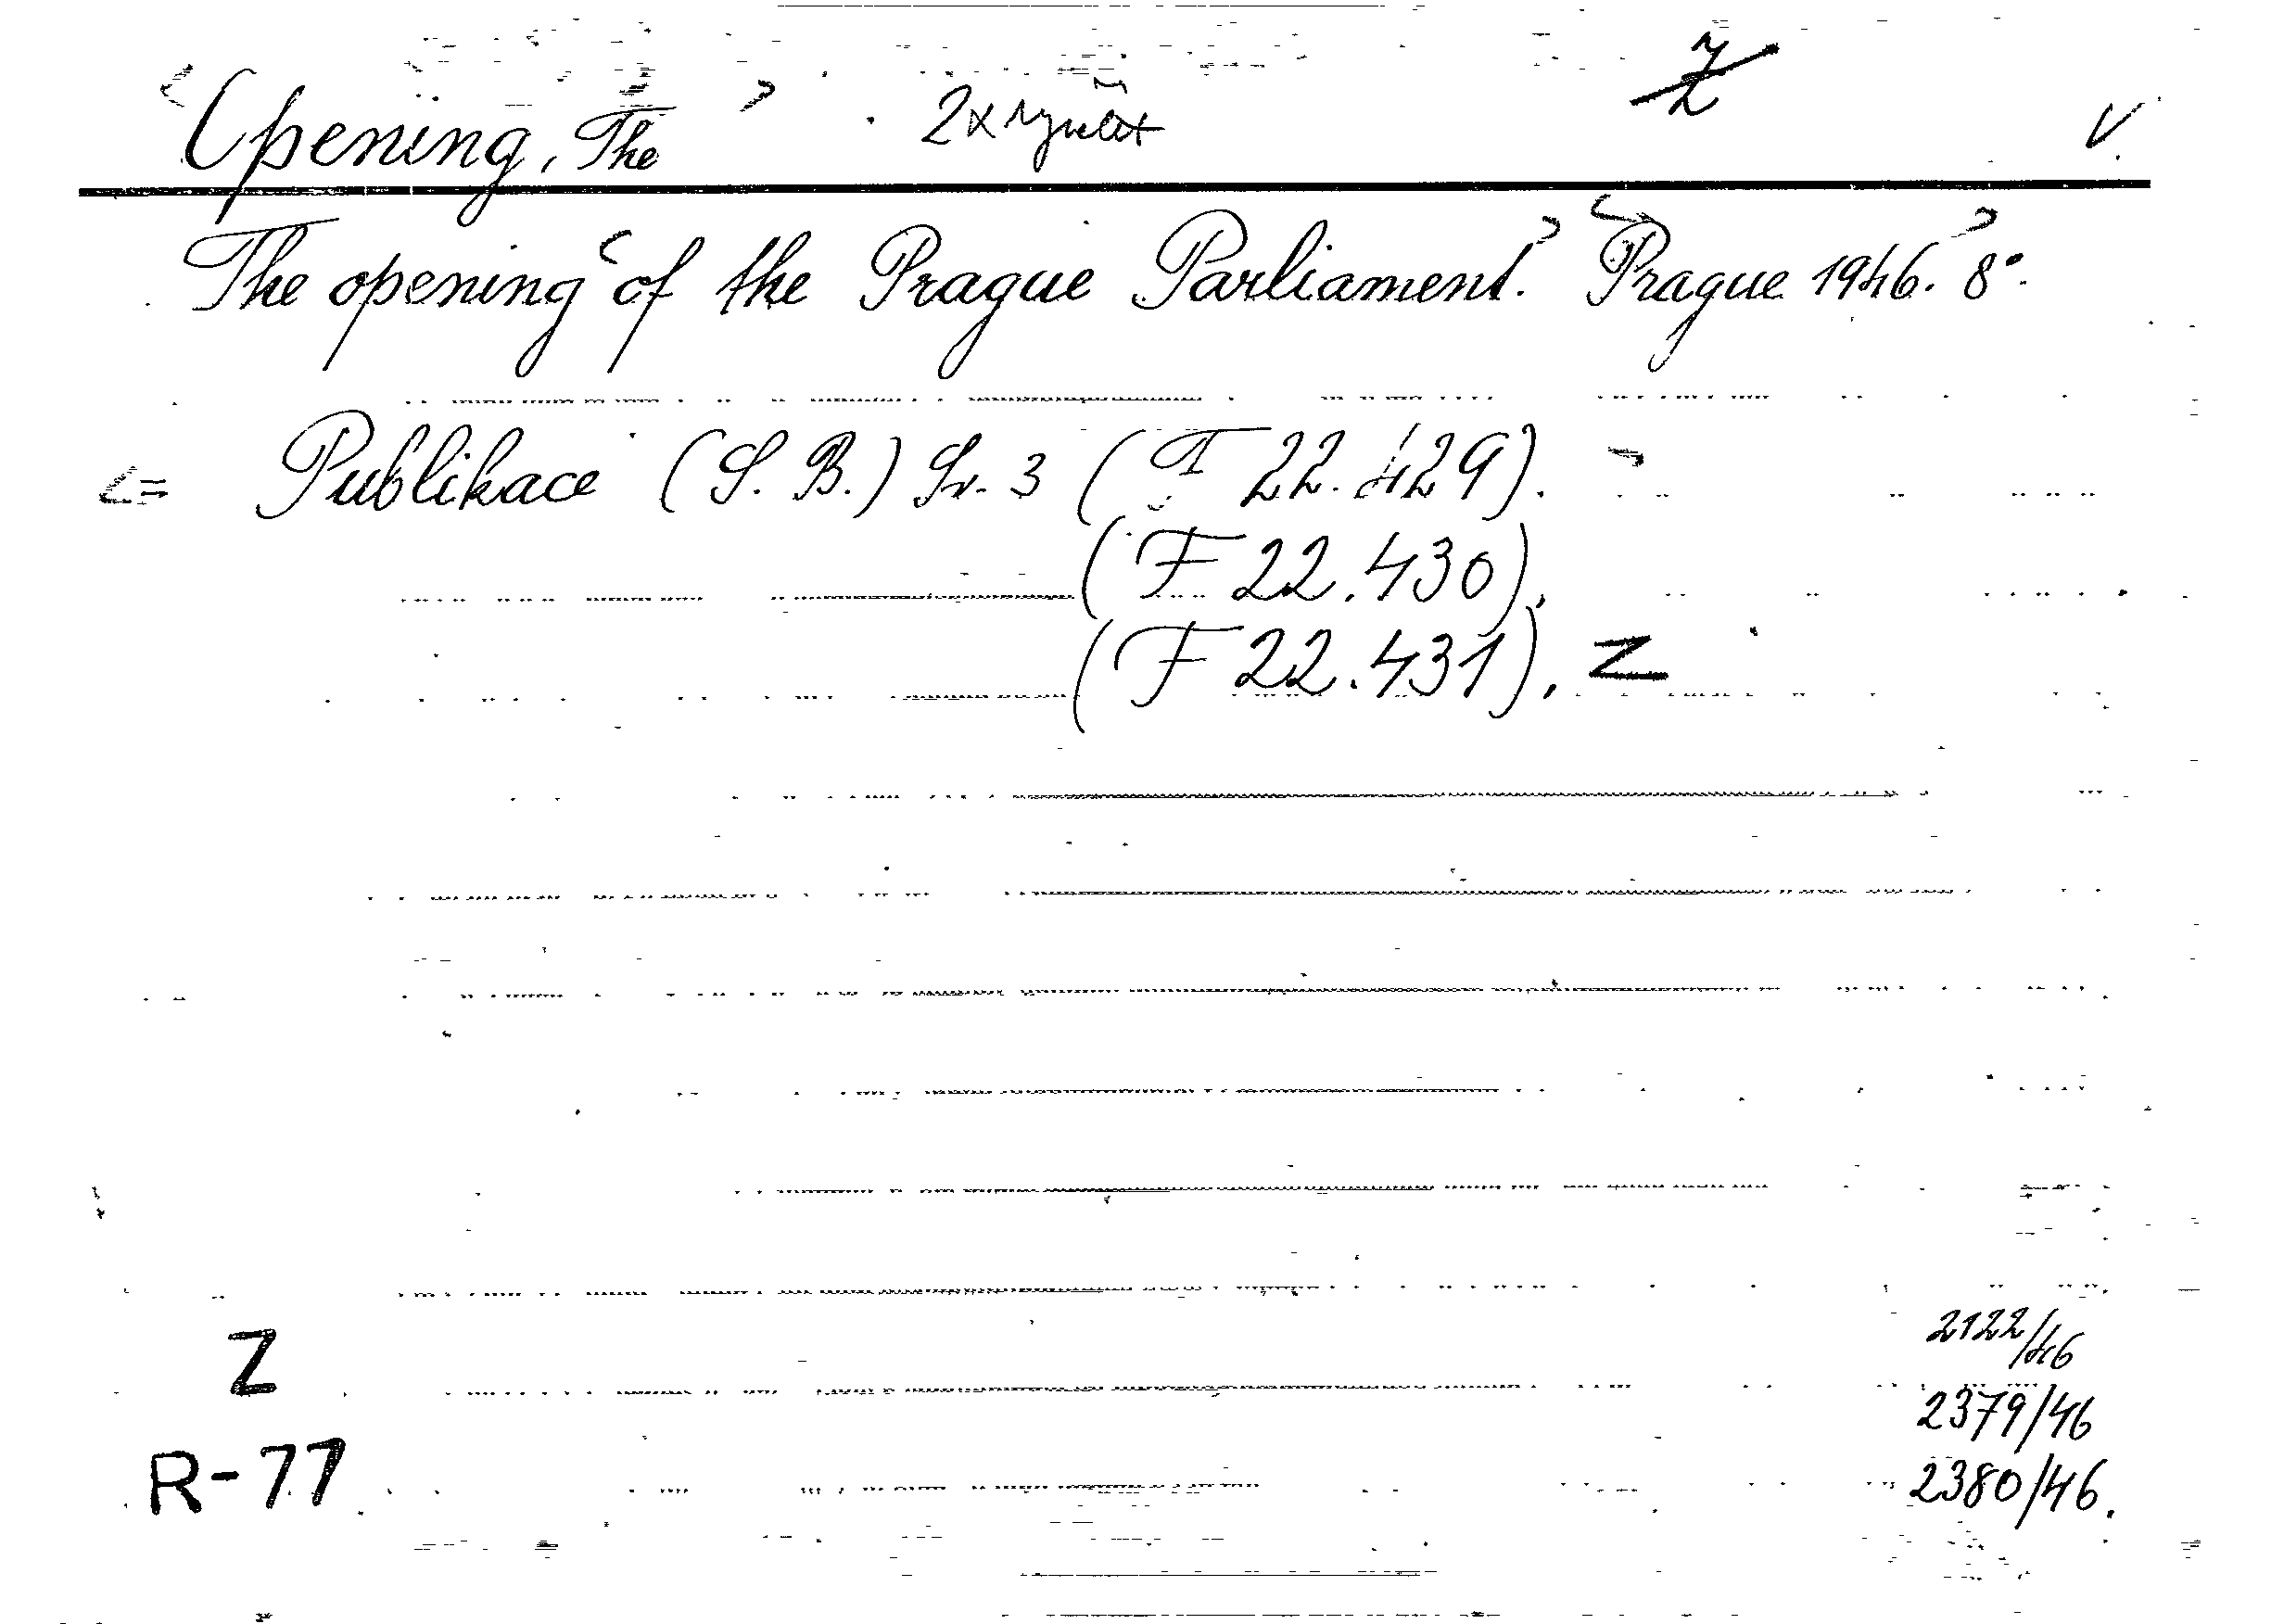 Opening, The 2x Z V.
The opening of the Prague Parliament. Prague 1946. 8°.
= Publikace (S. B.) Sv. 3 (F 22.429).
(F 22.430),
(F 22.431), Z
2122/46
Z
2379/46
R-77
2380/46.